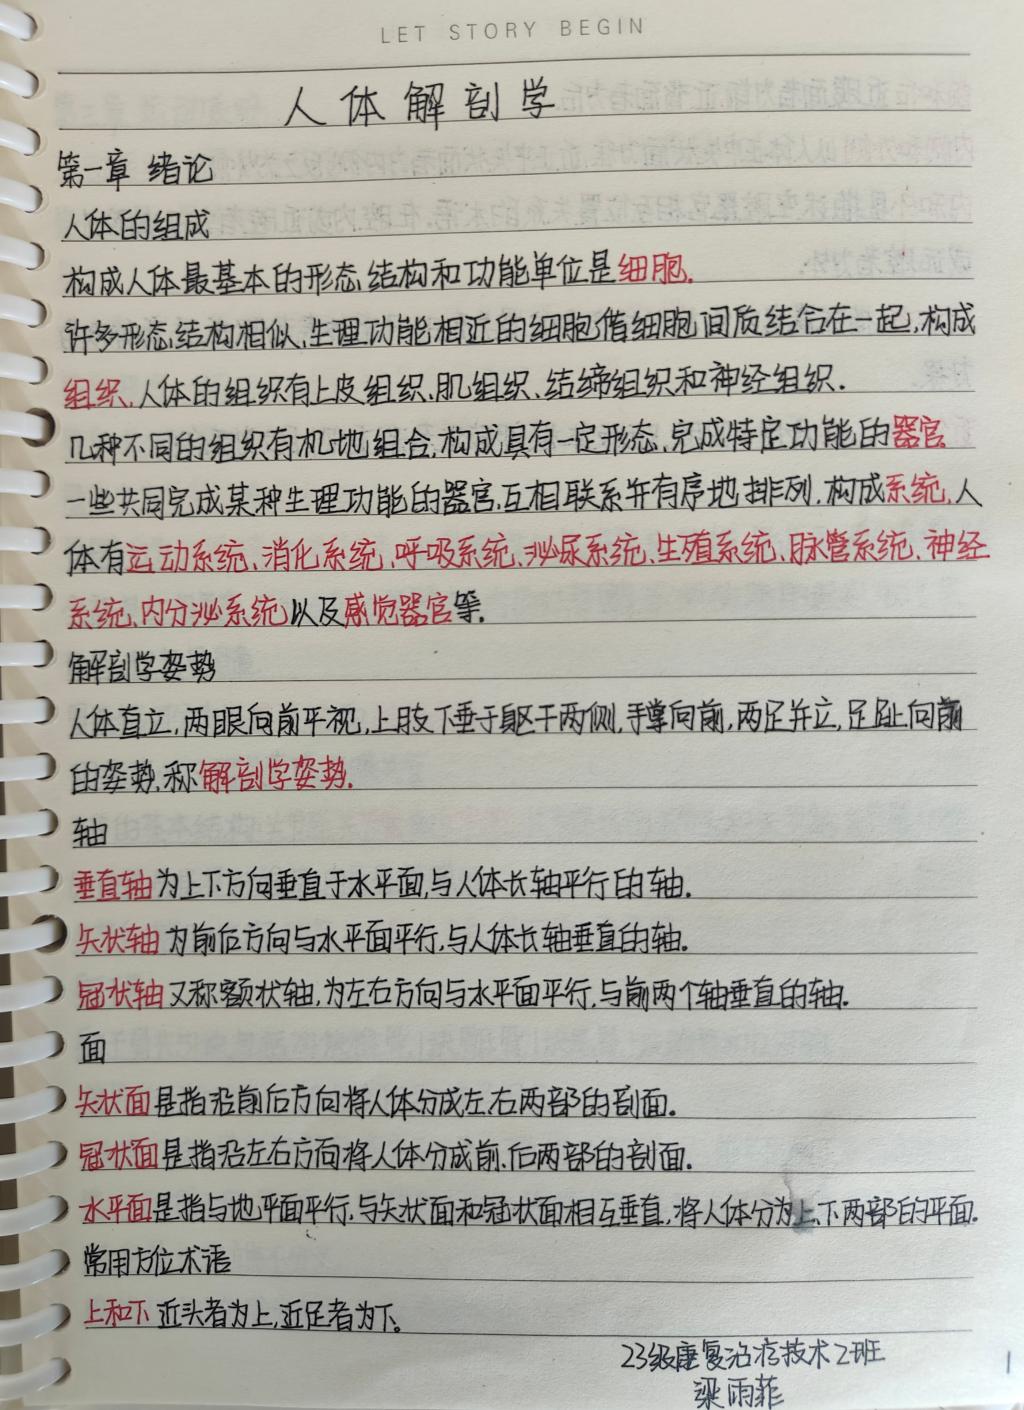 LET STORY BEGIN
人体解剖学
第一章 绪论
人体的组成
构成人体最基本的形态结构和功能单位是细胞.
许多形态结构相似、生理功能相近的细胞借细胞间质结合在一起,构成
组织,人体的组织有上皮组织、肌组织、结缔组织和神经组织.
几种不同的组织有机地组合,构成具有一定形态,完成特定功能的器官
一些共同完成某种生理功能的器官,互相联系并有序地排列,构成系统,人
体有运动系统、消化系统、呼吸系统、泌尿系统、生殖系统、脉管系统、神经
系统、内分泌系统以及感觉器官等.
解剖学姿势
人体直立,两眼向前平视,上肢下垂于躯干两侧,手掌向前,两足并立,足趾向前
的姿势,称解剖学姿势.
轴
垂直轴为上下方向垂直于水平面,与人体长轴平行的轴.
矢状轴为前后方向与水平面平行,与人体长轴垂直的轴.
冠状轴又称额状轴,为左右方向与水平面平行,与前两个轴垂直的轴.
面
矢状面是指沿前后方向将人体分成左、右两部的剖面.
冠状面是指沿左右方向将人体分成前、后两部的剖面.
水平面是指与地平面平行,与矢状面和冠状面相互垂直,将人体分为上、下两部的平面.
常用方位术语
上和下 近头者为上,近足者为下。
23级康复治疗技术2班
梁雨菲
1